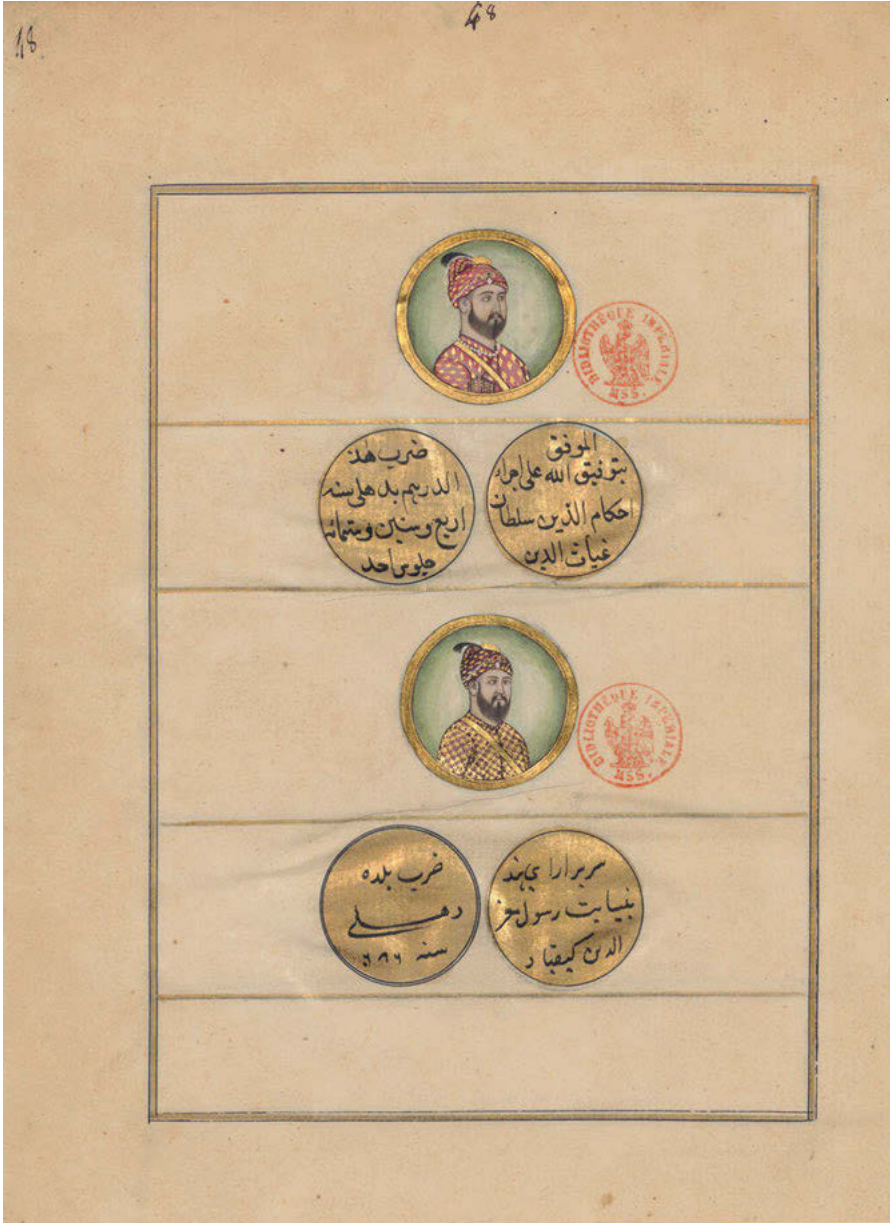 48
48
BIBLIOTHÈQUE IMPÉRIALE
MSS.
الموفق
بتوفيق الله على اجراء
احكام الدين سلطان
غياث الدين
ضرب هذ
الدرهم بدهلى سنه
اربع وستين وستمائه
جلوس احد
BIBLIOTHÈQUE IMPÉRIALE
MSS.
سرير اراي هند
بنيابت رسول معز
الدين كيقباد
ضرب بلده
دهلے
سنه ٦٨٦